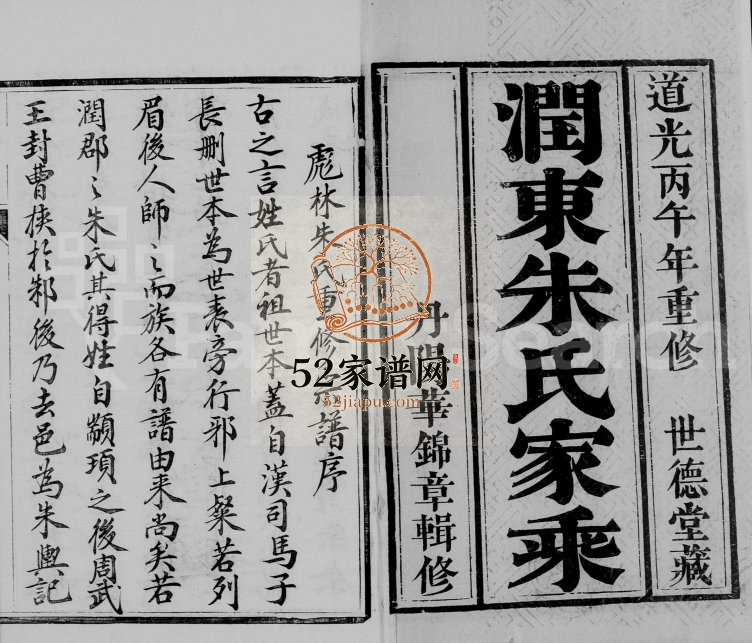 道光丙午年重修　世德堂藏
潤東朱氏家乘
丹陽華錦章輯修
彪林朱氏重修宗譜序
古之言姓氏者祖世本蓋自漢司馬子
長刪世本為世表旁行邪上粲若列
眉後人師之而族各有譜由来尚矣若
潤郡之朱氏其得姓自顓頊之後周武
王封曹挾於邾後乃去邑為朱輿記
52家谱网
52jiapu.com